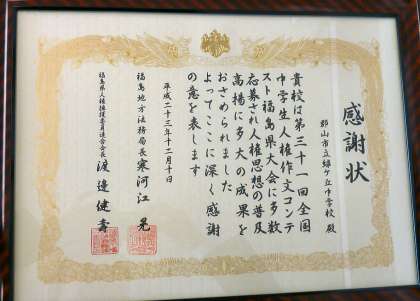 感謝状
郡山市立緑ケ丘中学校 殿
貴校は第三十一回全国
中学生人権作文コンテ
スト福島県大会に多数
応募され人権思想の普及
高揚に多大の成果を
おさめられました
よってここに深く感謝
の意を表します
平成二十三年十二月十日
福島地方法務局長 寒河江 晃
福島県人権擁護委員連合会会長 渡邉健壽